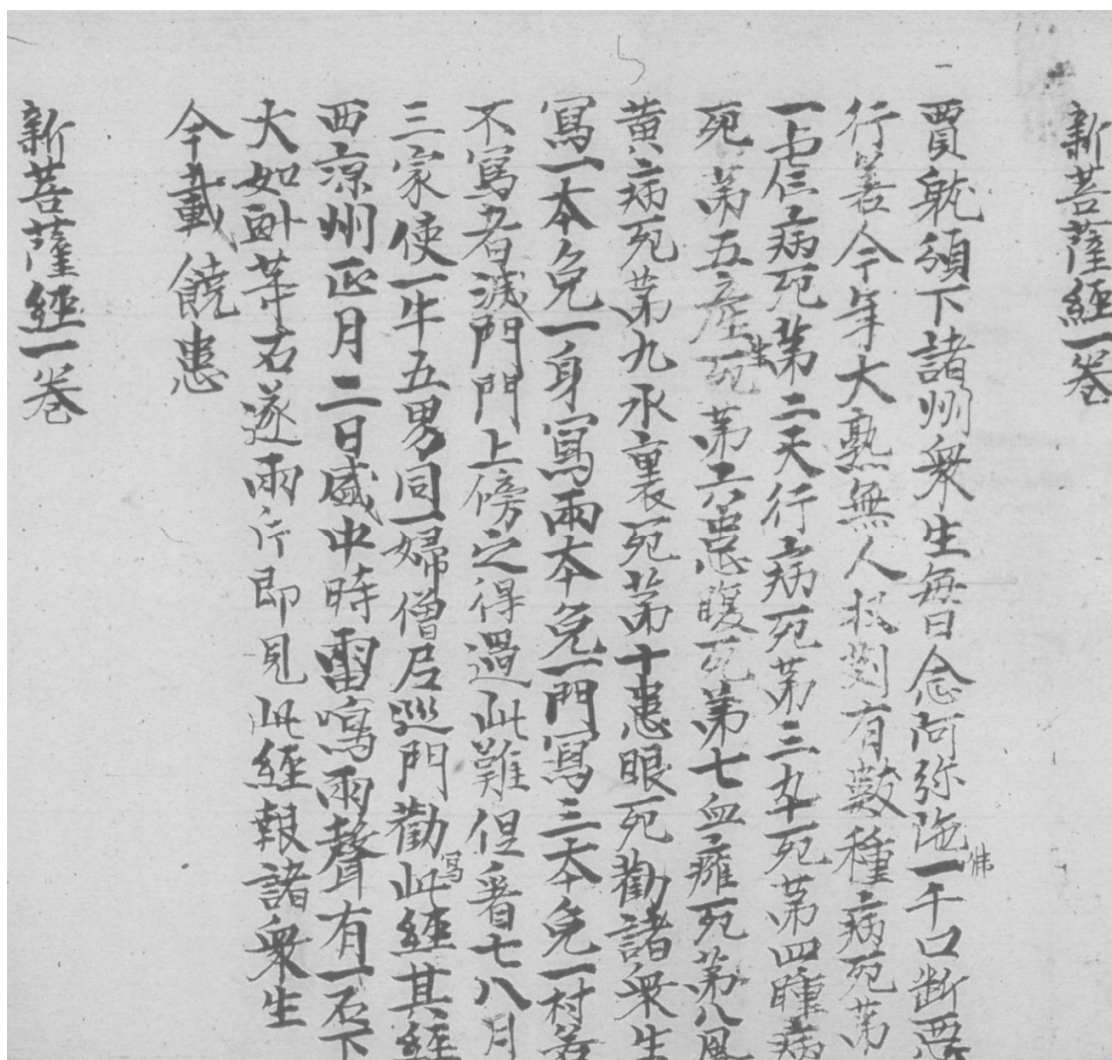 新菩薩經一卷
賈耽頒下諸州衆生每日念阿弥陁佛一千口断惡
行善今年大熟無人收刈有數種病死第
一虐病死第二天行病死第三卒死第四瞳病
死第五産生死第六患腹死第七血癰死第八風
黃病死第九水裏死第十患眼死勸諸衆生
寫一本免一身寫兩本免一門寫三本免一村若
不寫者滅門門上傍之得過此難但看七八月
三家使一牛五男同一婦僧尼巡門勸寫此經其經
西凉州正月二日盛中時雷鳴雨聲有一石下
大如㪷苐石遂兩片即見此經報諸衆生
今載饒患
新菩薩經一卷